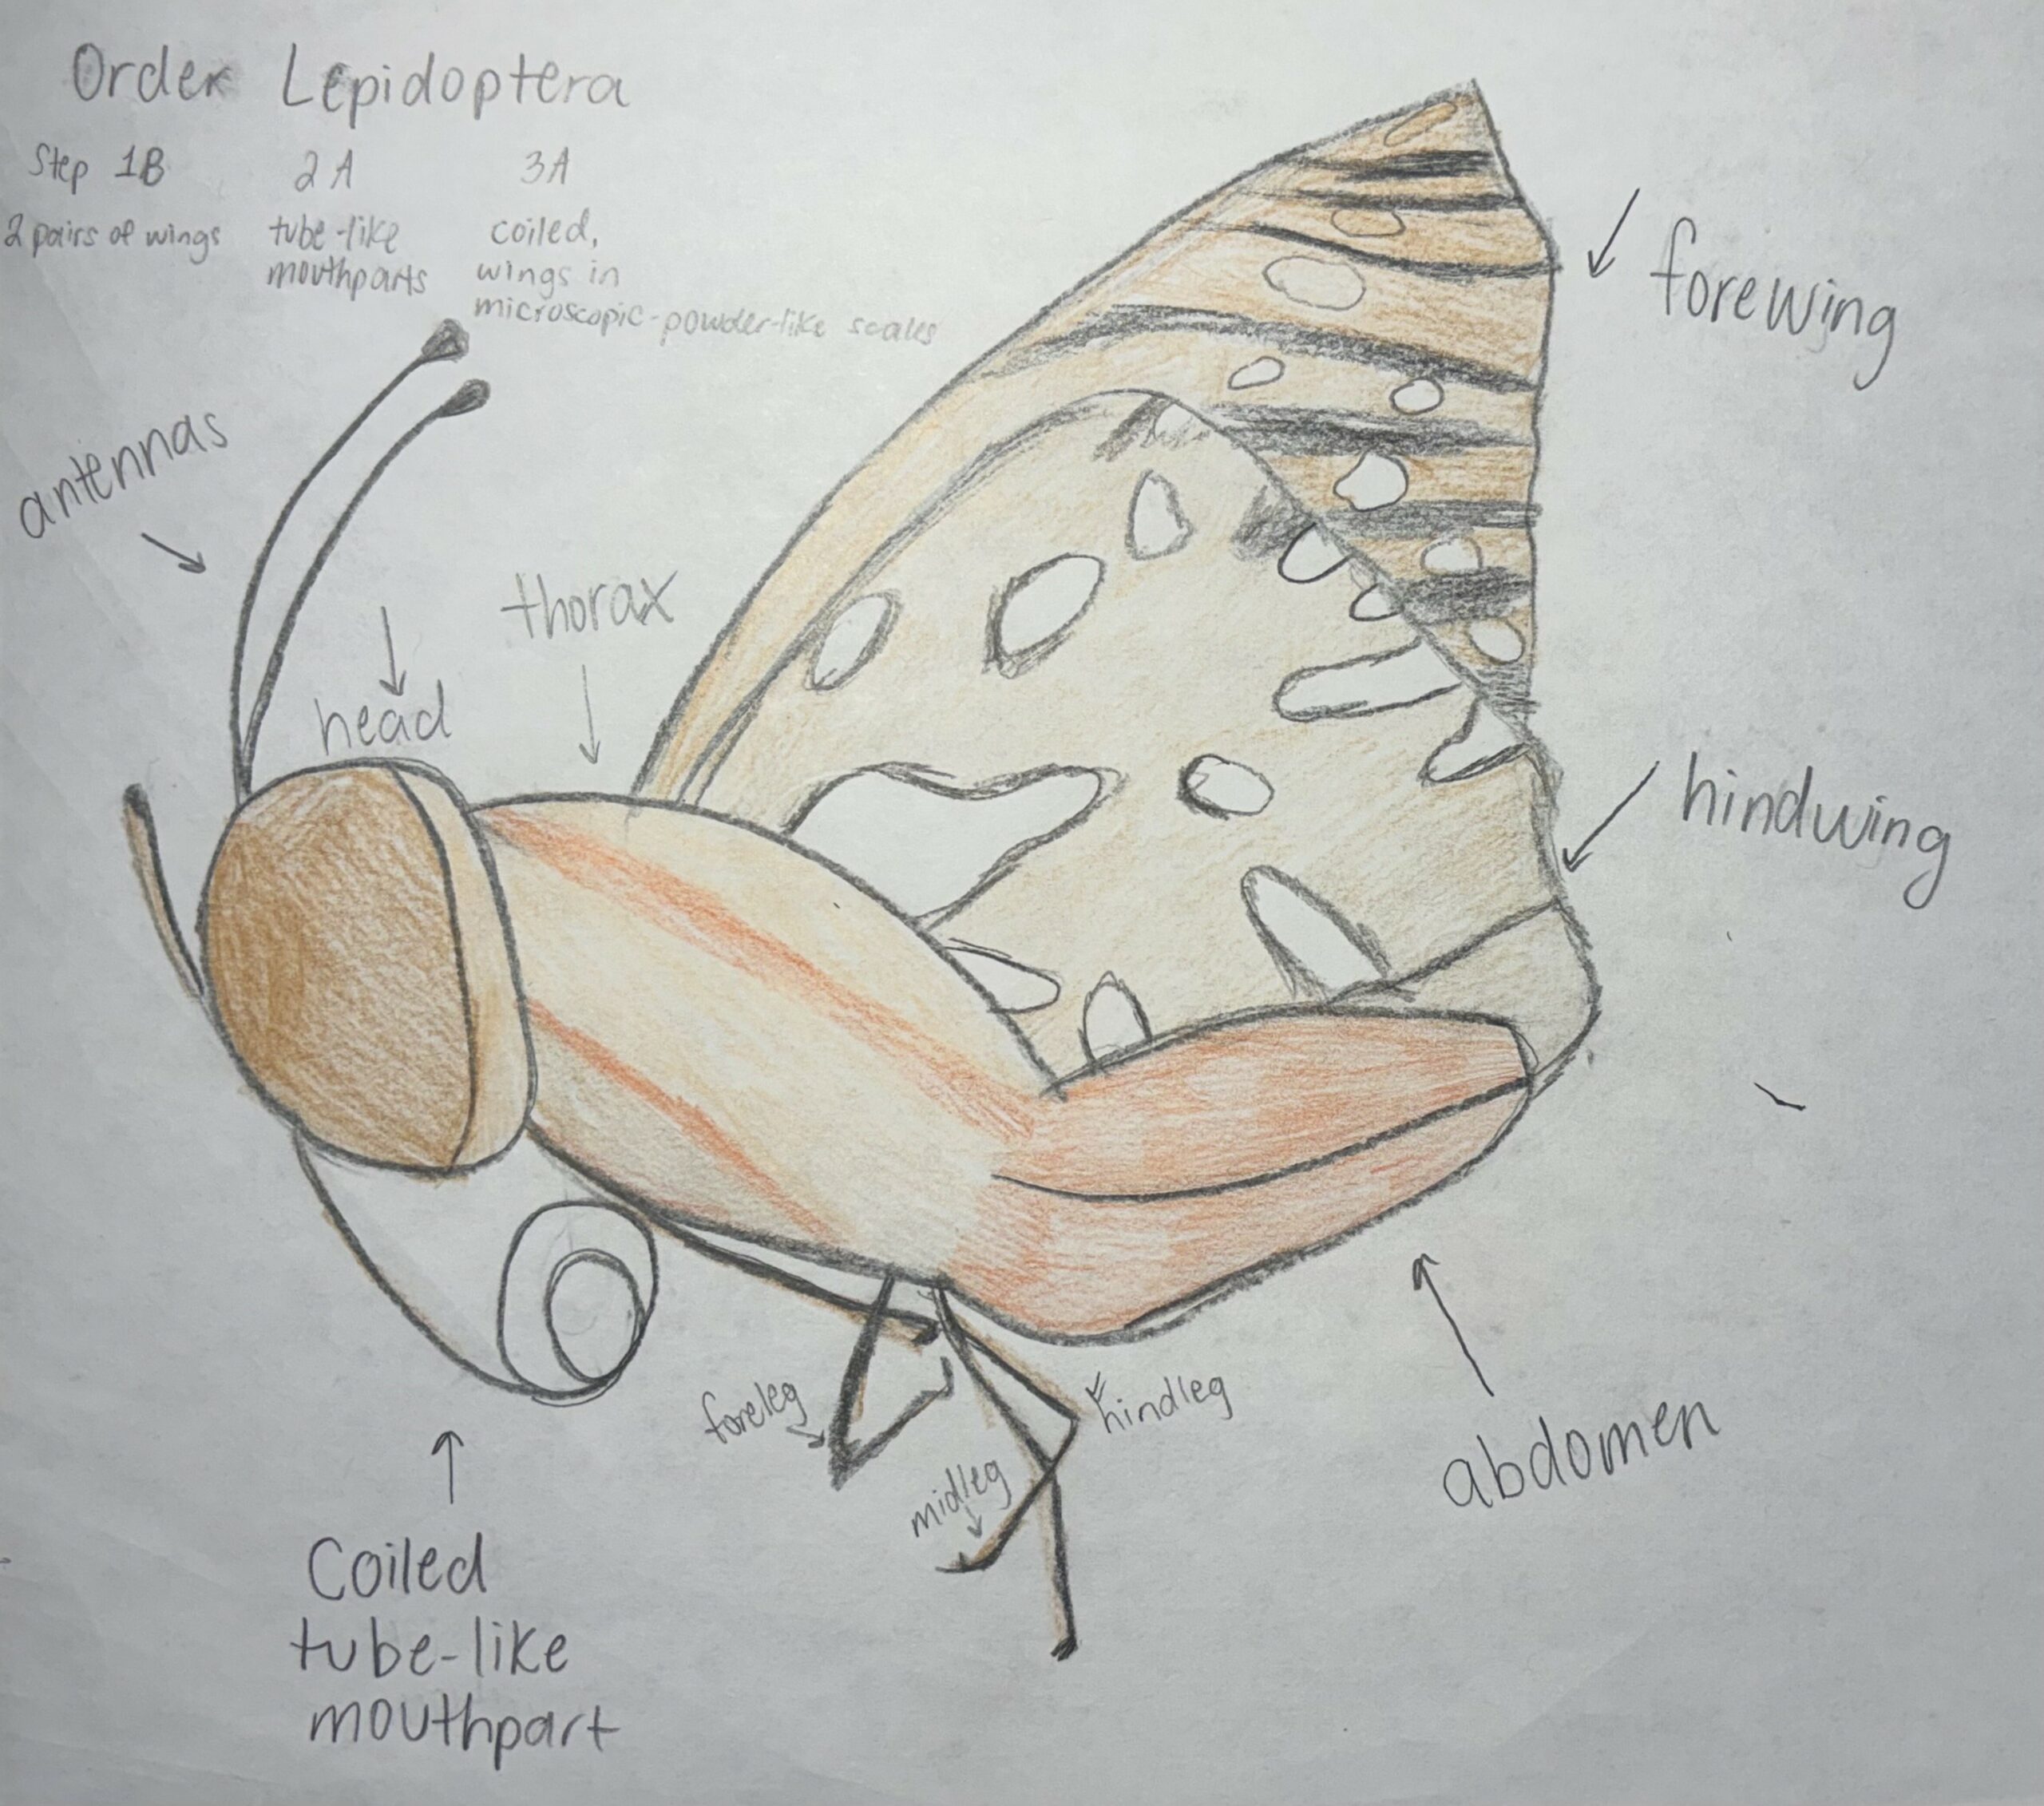 Order Lepidoptera
Step 1B 2A 3A
2 pairs of wings tube-like coiled,
mouthparts wings in
microscopic-powder-like scales
forewing
antennas
thorax
head
hindwing
foreleg
hindleg
midleg
abdomen
Coiled
tube-like
mouthpart